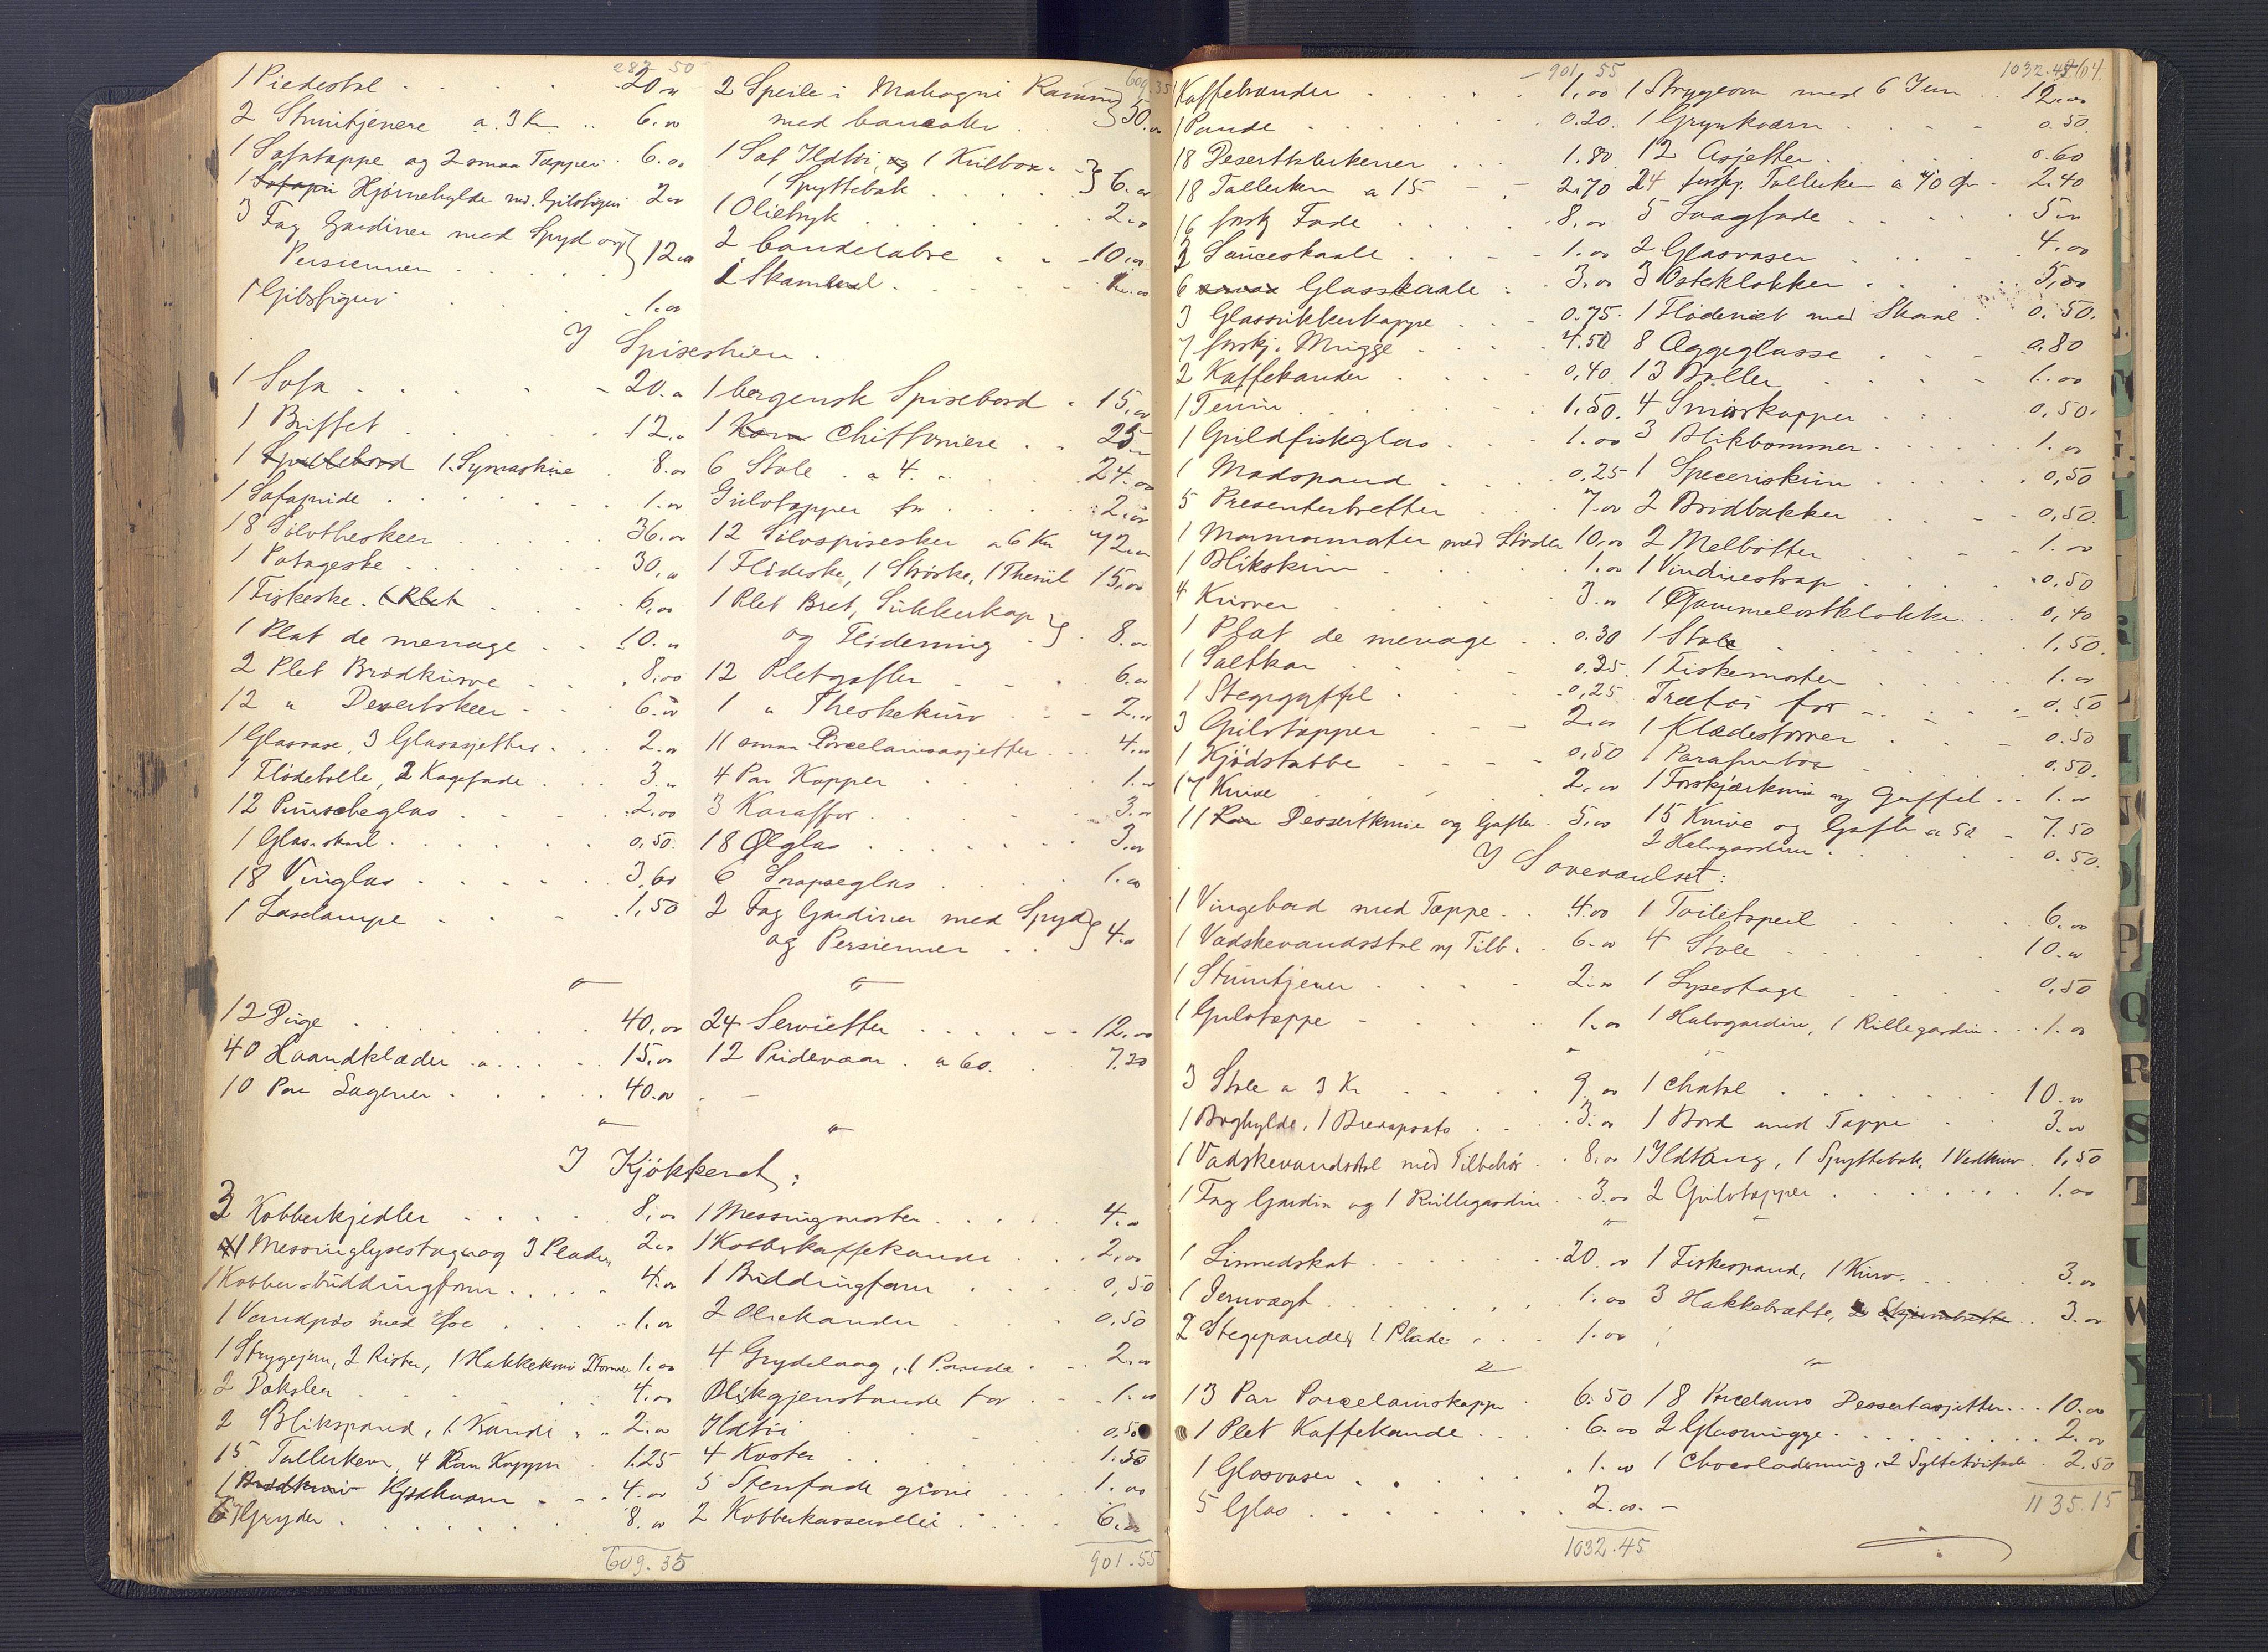 287 50
1 Piedestal . . . . 20.00
2 Stumtjenere a. 3 Kr .. 6.00
1 Sofatæppe og 2 smaa Tæpper . 6.00
1 Hjørnehylde md. Gibsfigur 2.00
3 Fag Gardiner med Spyd og
Persienner . . . . 12.00
1 Gibsfigur . . . 1.00
609.35
2 Speile i Mahogni Ramme
med Consoler . . 50.00
1 Sæt Ildtøi, og 1 Kulbox.
1 Spyttebak . . . 6.00
1 Olietryk . . . . 2.00
2 Candelabre . . 10.00
1 Skammel . . . . 1.00
I Spisestuen.
1 Sofa . . . . 20.00
1 Buffet . . . . 12.00
1 Spillebord 1 Symaskine . 8.00
1 Sofapude . . . . 1.00
18 Sølvtheskeer . . . 36.00
1 Potageske . . . . 30.00
1 Fiskeske. (Plet . . . 6.00
1 Plat de menage . . 10.00
2 Plet Brødkurve . . 8.00
12 " Desertskeer . . 6.00
1 Glasvase, 3 Glasasjetter . . 2.00
1 Flødebolle, 2 Kagefade . . 3.00
12 Punscheglas . . . 2.00
1 Glas-skaal . . . . 0.50.
18 Vinglas . . . . 3.60
1 Taselampe . . . 1,50
1 bergensk Spisebord . 15.00
1 Chiffoniere . . 25.00
6 Stole . a 4. . . 24.00
Gulvtæpper for . . . 2.00
12 Sølvspiseskeer a 6 Kr 72.00
1 Flødeske, 1 Strøske, 1 Thesiil 15.00
1 Plet Bret, Sukkerkop
og Flødemug . 8.00
12 Pletgafler . . . 6.00
1 " Theskekurv . . 2.00
11 smaa Porcelainsasjetter . . 4.00
4 Par Kopper . . . 1.00
3 Karaffer . . . . 3.00
18 Ølglas . . . . . 3.00
6 Snapseglas . . . . 1.00
2 Fag Gardiner med Spyd
og Persienner . . 4.00
12 Duge . . . . . 40.00
40 Haandklæder . . . . 15.00
10 Par Lagener . . . . 40.00
24 Servietter . . . . 12.00
12 Pudevaar . a 60. . 7,20
I Kjøkkenet:
3 Kobberkjedler . . . . 8.00
1 Messinglysestage og 3 Plader 2.00
1 Kobber-Buddingform . . . . 4.00
1 Vandpøs med Øse . . . . 1.00
1 Strygejern, 2 Rister, 1 Hakkekniv 2 Former 1.00
2 Dørslag . . . . 4.00
2 Blikspand, 1 Kande . . 2.00
15 Tallerken, 4 Par Kopper . 1.25
1 Brødkniv Kjødkvern . . 4.00
6 Gryder . . . . . 8.00
609.35
1 Messingmorter . . . . 4.00
1 Kobberkaffekande . . . 2.00
1 Buddingform . . . 0,50
2 Oliekander . . . . 0.50
4 Grydelaag, 1 Pande . . 2.00
Blikgjenstande for . . 1.00
Ildtøi . . . 0,50
4 Koster . . . . 1.50
5 Stenfade grove . . 1.00
2 Kobberkasseroller . . . 6.00
901.55
901.55
Kaffebrænder . . . . 1.00
1 Pande . . . . . 0.20.
18 Deserttallerkener . . . 1.80
18 Tallerken a 15 - - . 2.70
16 forskj Fade . . . . 8.00
2 Sauceskaale . . . - 1.00
6 Glasskaale . . 3.00
3 Glassukkerkoppe . . . 0.75.
7 forskj. Mugge . . . . 4.50
2 Kaffekander . . . . 0,40
1 Terrin . . . . . 1,50.
1 Guldfiskglas . . . . 1.00
1 Madspand . . . . 0,25
5 Presenterbretter . . . 7.00
1 Marmormorter med Støder 10.00
1 Blikskrin . . . . 1.00
4 Kurver . . . . . 3.00
1 Plat de menage . . 0.30
1 Saltkar . . . . 0.25
1 Stegegaffel . . . . 0,25
3 Gulvtæpper . . . 2.00
1 Kjødstabbe . . . . 0,50
17 Knive . . . . 2.00
11 Par Dessertknive og Gafler . 5.00
1032.45
1 Strygeovn med 6 Jern . . 12.00
1 Grynkværn . . . . 0.50
12 Asjetter . . . . . 0.60
24 forskj. Tallerken a 10 Ør . 2.40
5 Laagfade . . . . . 5.00
2 Glasvaser . . . . 4.00
3 Osteklokker . . . . 5.00
1 Flødenæt med Skaal . 0.50.
8 Æggeglasse . . . 0.80
13 Boller . . . . 1.00
4 Smørkopper . . . . 0,50.
3 Blikbommer . . . . 1.00
1 Speceriskrin . . . . 0,50
2 Brødbakker . . . . 0,50.
2 Melbøtter . . . . 1.00
1 Vinduestrap . . . . 0,50
1 Gammelostklokke . . 0,40
1 Stol . . . . . 1,50.
1 Fiskemorter . . . . 1.00
Trætøi for . . . . 0.50
1 Klædestorver . . . 0.50
1 Parafinbox . . . . 0.50.
1 Forskjærkniv og Gaffel . . 1.00
15 Knive og Gafler a 50 . 7.50
2 Halvgardiner . . . . 0.50.
I Soveværelset:
1 Vingebord med Tæppe . . 4.00
1 Vadskevandsstol m/ Tilb. . 6.00
1 Stumtjener . . . . 2.00
1 Gulvtæppe . . . . 1.00
1 Toiletspeil . . . . 6.00
4 Stole . . . . 10.00
1 Lysestage . . . . 0.50
1 Halvgardin, 1 Rullegardin . . . 1.00
3 Stole a 3 Kr . . . . 9.00
1 Boghylde, 1 Brevapparats . . . 3.00
1 Vadskevandsstol med Tilbehør . . 8.00
1 Fag Gardin og 1 Rullegardin . . 3.00
1 Chatol . . . . . 10.00
1 Bord med Tæppe . . . 3.00
1 Ildtang, 1 Spyttebak, 1 Vedkurv . 1,50
2 Gulvtæpper . . . . . 1.00
1 Linnedskab . . . . . 20.00
1 Jernvægt . . . . . 1.00
2 Stegepander, 1 Plade . . . 1.00
1 Fiskespand, 1 Kurv. . . . 3.00
3 Hakkebrætte, . . 3.00
13 Par Porcelainskopper . 6.50
1 Plet Kaffekande . . . . 6.00
1 Glasvaser . . . . . 1.00
5 Glas . . . . . 2.00.-
1032.45
18 Porcelains Dessertasjetter . . . 10.00
2 Glasmugge . . . . . 2.00
1 Chocolademug, 2 Syltetøifade . 2.50
1135.15
E
G
I
L
N
O
P
Q
R
S
T
U
W
Y
Z
Æ
Ö